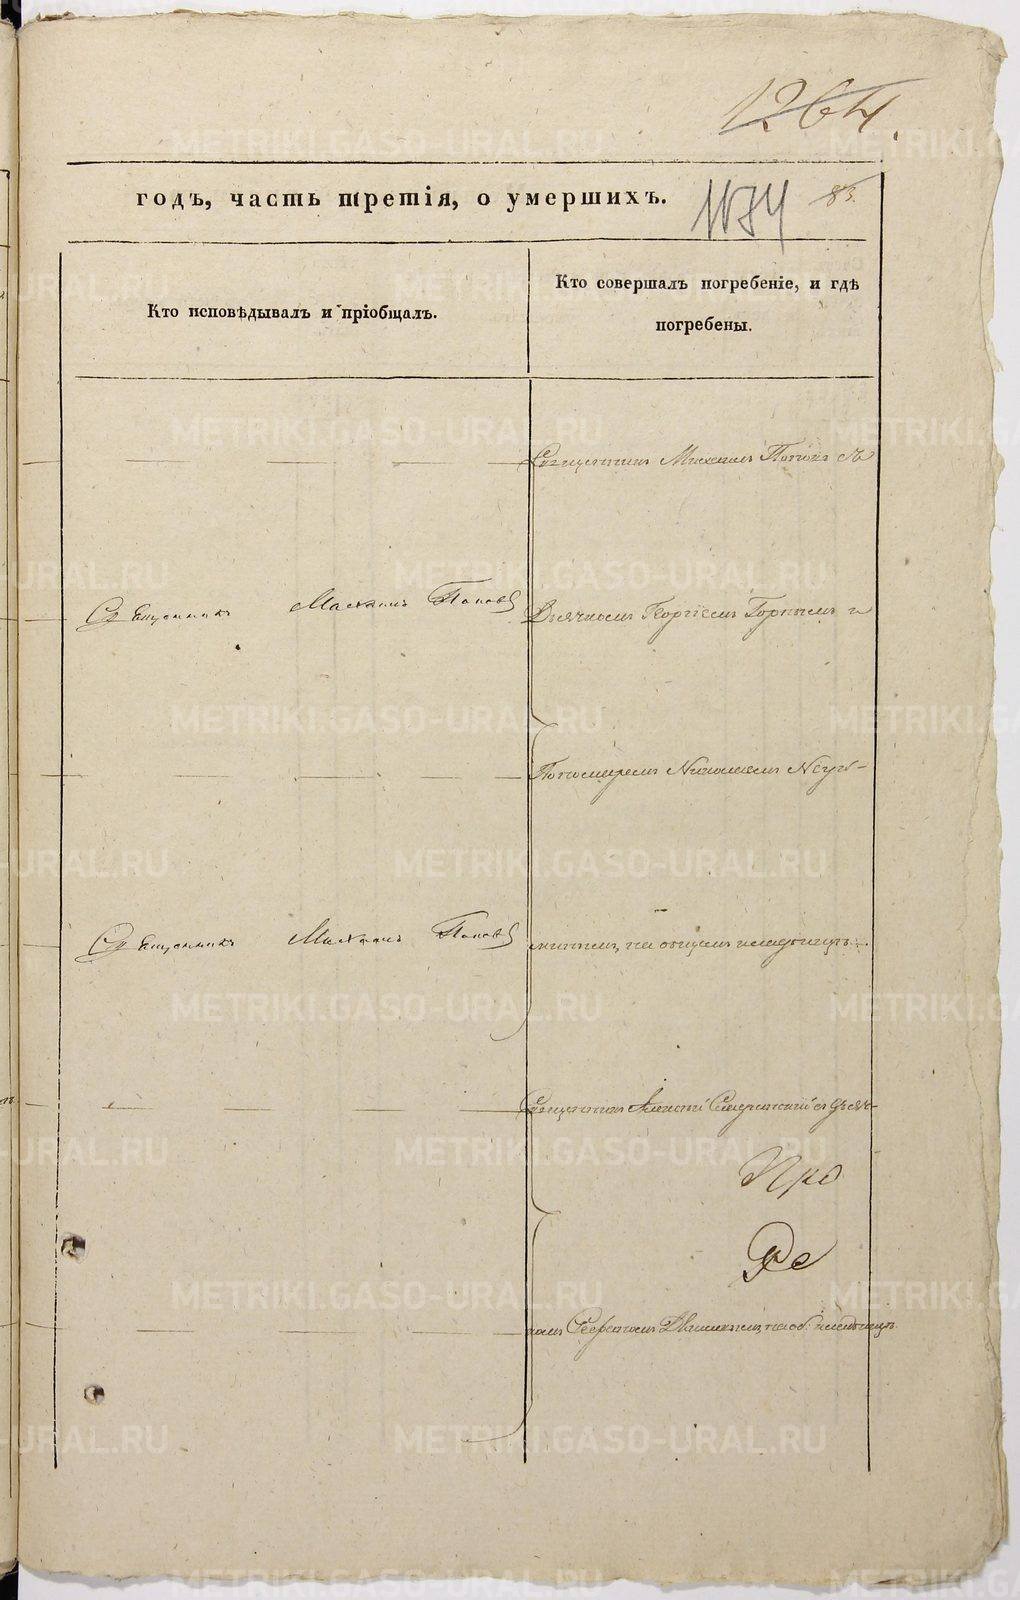 1264.
годъ, часть третія, о умершихъ.
1174 83.
Кто исповѣдывалъ и пріобщалъ.
Кто совершалъ погребеніе, и гдѣ
погребены.
Священникъ Михаилъ Поповъ съ
Священникъ Михаилъ Поповъ
Дьячкомъ Георгіемъ Горнымъ и
Пономаремъ Николаемъ
Священникъ Михаилъ Поповъ
на общемъ кладбищѣ.
Священникъ Алексій съ дьяч-
Про
Ре
комъ на об. кладбищѣ
METRIKI.GASO-URAL.RU